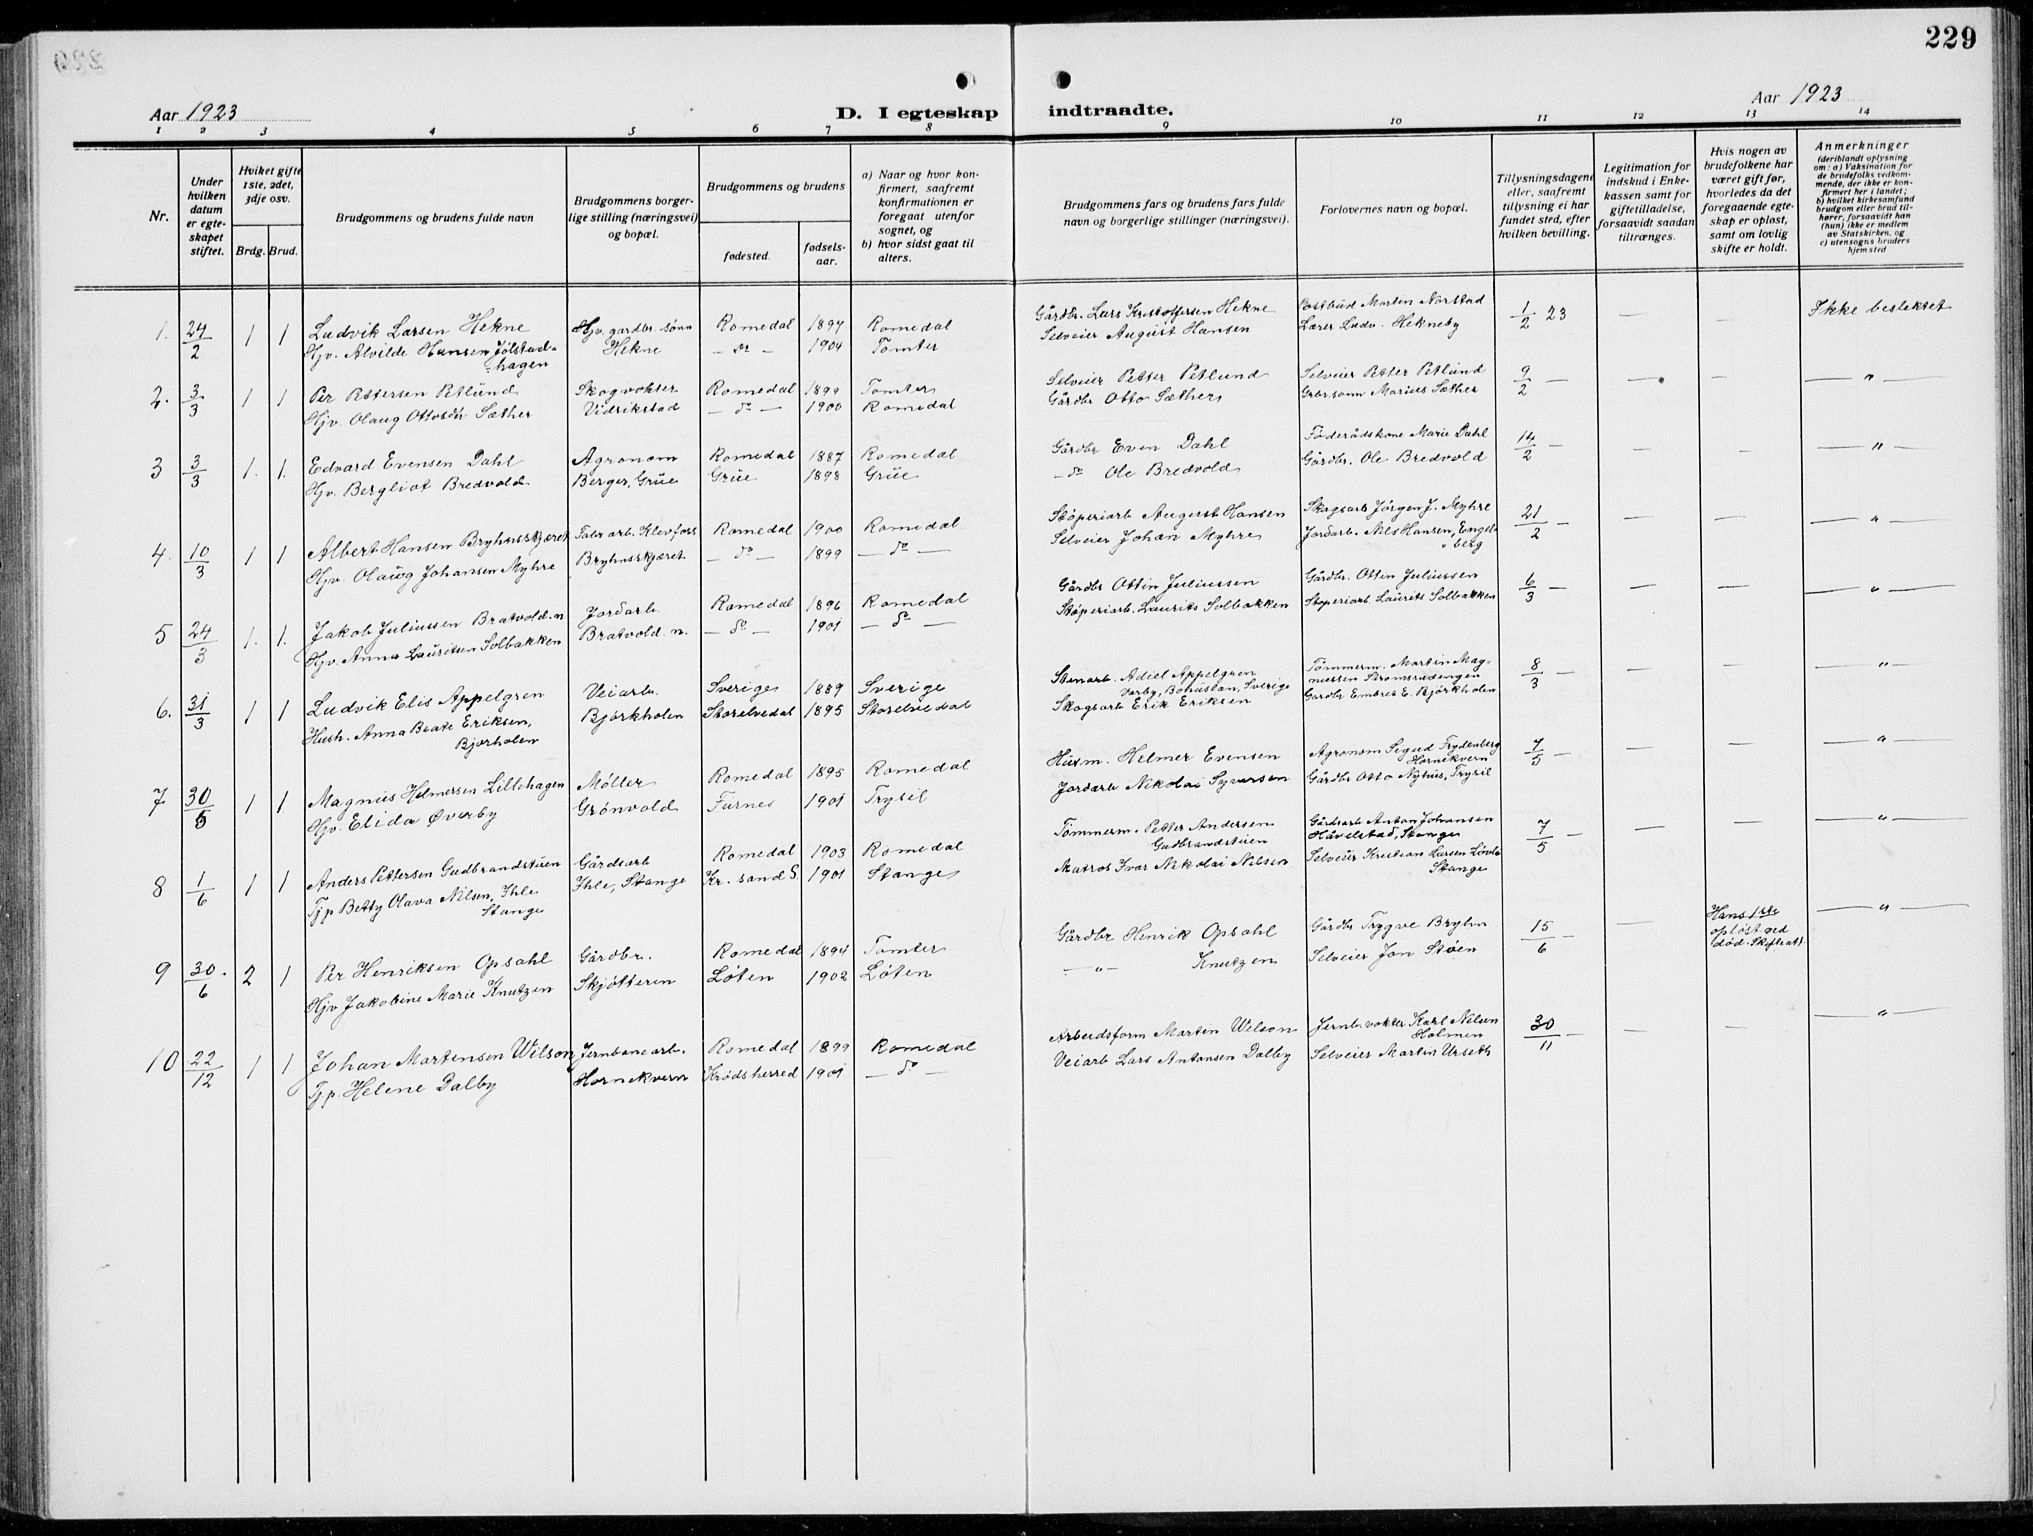 229
Aar 1923
D. I egteskap indtraadte.
Aar 1923
1 2 3 4 5 6 7 8 9 10 11 12 13 14
Nr.
Under hvilken datum er egteskapet stiftet.
Hviket gifte 1ste, 2det, 3dje osv.
Brdg. Brud.
Brudgommens og brudens fulde navn
Brudgommens borgerlige stilling (næringsvei) og bopæl.
Brudgommens og brudens
fødested. fødselsaar.
a) Naar og hvor konfirmert, saafremt konfirmationen er foregaat utenfor sognet, og
b) hvor sidst gaat til alters.
Brudgommens fars og brudens fars fulde navn og borgerlige stillinger (næringsvei).
Forlovernes navn og bopæl.
Tillysningsdagene eller, saafremt tillysning ei har fundet sted, efter hvilken bevilling.
Legitimation for indskud i Enkekassen samt for giftetilladelse, forsaavidt saadan tiltrænges.
Hvis nogen av brudefolkene har været gift før, hvorledes da det foregaaende egteskap er opløst, samt om lovlig skifte er holdt.
Anmerkninger
(deriblandt oplysning om: a) Vaksination for de brudefolks vedkommende, der ikke er konfirmert her i landet; b) hvilket kirkesamfund brudgom eller brud tilhører, forsaavidt han (hun) ikke er medlem av Statskirken, og c) utensogns bruders hjemsted
1. 24/2 1 1 Ludvik Larsen Hekne Hjv. gardbr. sønn Romedal 1897 Romedal Gårdbr. Lars Kristoffersen Hekne Postbud Morten Norstad 1/2 23 — — Ikke beslektet
Hjv. Alvilde Hansen Jølstad- Hekne — do — 1904 Tomter Selveier August Hansen Lærer Ludv. Hekneby
hagen
2. 3/3 1 1 Per Pettersen Petlund Skogvokter Romedal 1899 Tomter Selveier Petter Petlund Selveier Petter Petlund 9/2 — — — — " —
Hjv. Olaug Ottosdtr Sæther Vidrikstad — do — 1900 Romedal Gårdbr Otto Sæther Grbr.sønn Marius Sæther
3 3/3 1. 1. Edvard Evensen Dahl Agronom Romedal 1887 Romedal Gårdbr Even Dahl Føderådskone Marie Dahl 14/2 — — — — " —
Hjv. Bergliot Bredvold Berger, Grue Grue 1898 Grue — do Ole Bredvold Gårdbr. Ole Bredvold
4. 10/3 1 1 Albert Hansen Bryhnsskjæret Fabr arb. Klevfoss Romedal 1900 Romedal Støperiarb August Hansen Skogsarb Jørgen J. Myhre 21/2 — — — — " —
Hjv. Olaug Johansen Myhre Bryhnsskjæret — do — 1899 — do — Selveier Johan Myhre Jordarb. Nils Hansen, Engel-
berg
5 24/3 1. 1. Jakob Juliussen Bratvold. n Jordarb. Romedal 1896 Romedal Gårdbr Ottin Juliussen Gårdbr. Ottin Juliussen 6/3 — — — — " —
Hjv. Anna Lauritsen Solbakken Bratvold. n. — do — 1901 — do — Støperiarb. Laurits Solbakken Støperiarb. Laurits Solbakken
6. 31/3 1 1 Ludvik Elis Appelgren Veiarb. Sverige 1889 Sverige Stenarb. Adiel Appelgren Tømmerm. Martin Mag- 8/3 — — — — " —
Hush. Anna Beate Eriksen, Bjørkholen Storelvedal 1895 Storelvedal Varby, Bohuslän, Sverige nussen Strømsrudengen
Bjørholen Skogsarb Erik Eriksen Gardbr Embret E. Bjørkholen
7 30/5 1 1 Magnus Helmersen Lillehagen Møller Romedal 1895 Romedal Husm. Helmer Evensen Agronom Sigud Trydenberg 7/5 — — — — " —
Hornekvern
Hjv. Elida Øverby Grønvold Furnes 1901 Trysil Jordarb Nikolai Syversen Gårdbr Otto Nyhus, Trysil
8 1/6 1 1 Anders Pettersen Gudbrandstuen Gårdsarb Romedal 1903 Romedal Tømmerm. Petter Andersen Gårdsarb Anton Johansen 7/5 — — — — " —
Gudbrandstuen Håvelstad, Stange
Tjp Betty Olava Nilsen, Ihle Ihle, Stange Kr. sand S. 1901 Stange Matros Ivar Nikolai Nilsen Selveier Kristian Larsen
Stange Stange
9 30/6 2 1 Per Henriksen Opsahl Gårdbr. Romedal 1894 Tomter Gårdbr Henrik Opsahl Gårdbr Trygve Bryhn 15/6 — Hans 1ste opløst ved død. — " —
Hjv Jakobine Marie Knutzen Skjøtteren Løten 1902 Løten — " — Knutzen Selveier Jon Støen
10 22/12 1 1 Johan Martensen Wilson Jernbanearb. Romedal 1899 Romedal Arbeidsform Marten Wilson Jernb. vokter Karl Nilsen 30/11 — — — — " —
Holmen
Tjp. Helene Dalby Hornekvern Krødsherred 1901 — do — Veiarb Lars Antonsen Dalby Selveier Martin Urseth